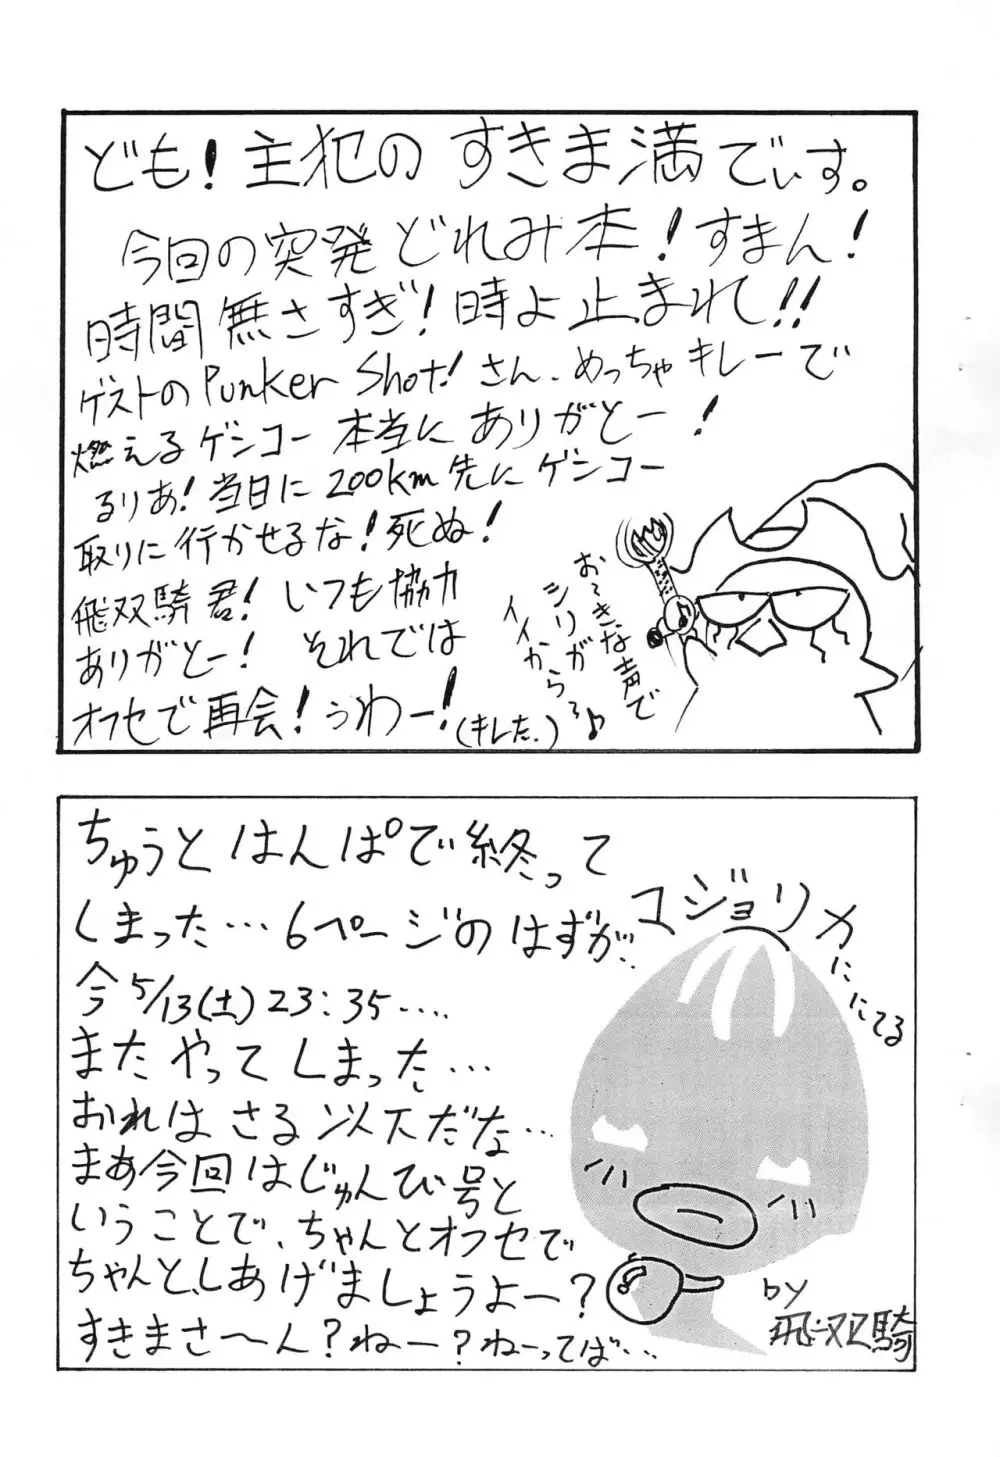 ども！主犯のすきま満でぃす。
今回の突発どれみ本！すまん！
時間無さすぎ！時よ止まれ!!
ゲストのPunker Shot！さん、めっちゃキレーで
燃えるゲンコー本当にありがとー！
るりあ！当日に200km先にゲンコー
取りに行かせるな！死ぬ！
飛双騎君！いつも協力
ありがとー！それでは
オフセで再会！うわー！(キレた。)
おーきな声で
シリガ
イイから〜♪
ちゅうとはんぱで終って
しまった…6ページのはずが…
今5/13(土)23:35….
またやってしまった…
おれはさる以下だな…
まあ今回はじゅんび号と
いうことで、ちゃんとオフセで
ちゃんとしあげましょうよー？
すきまさ〜ん？ねー？ねーってば…
マジョリカに
にてる
by
飛双騎